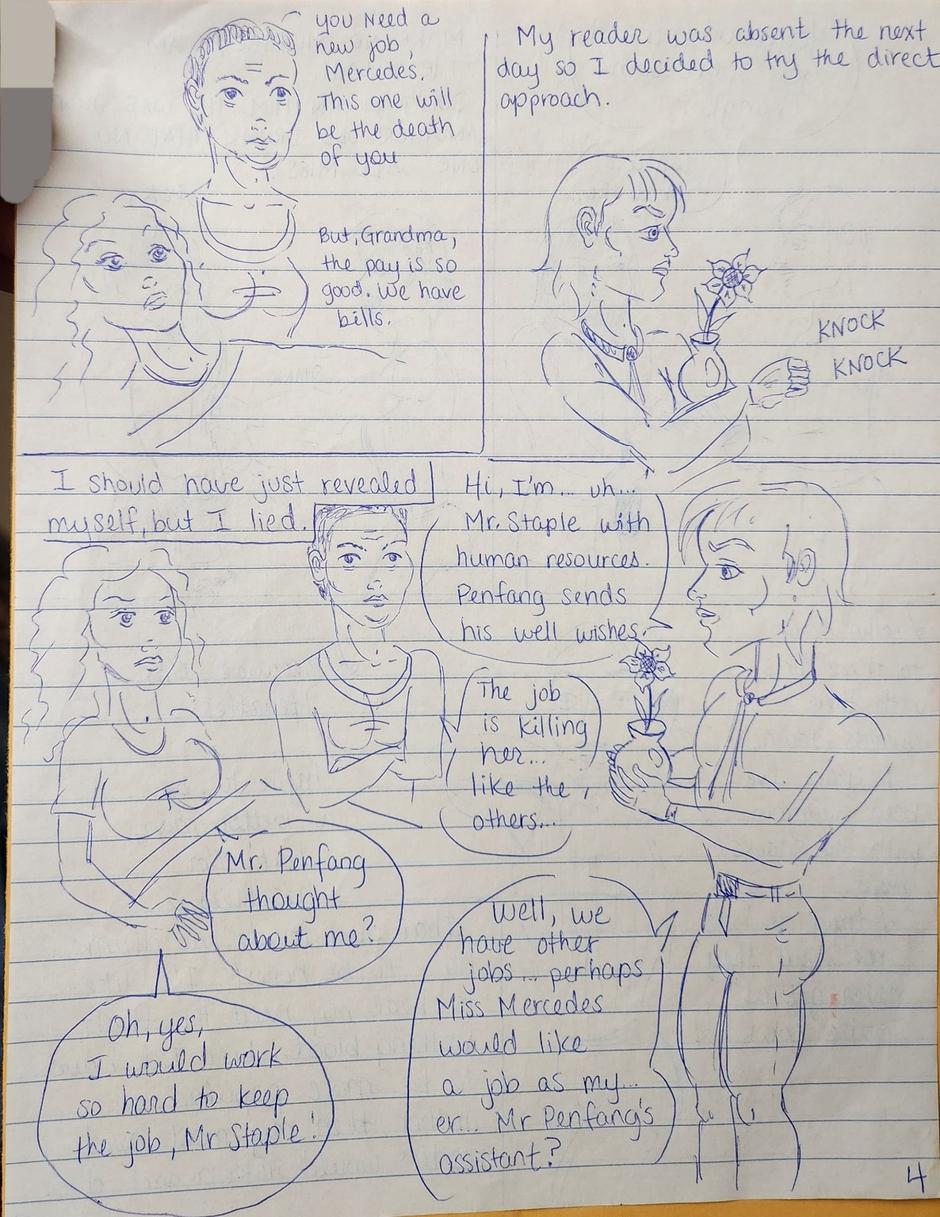 You Need a
new job,
Mercedes.
This one will
be the death
of you
But, Grandma,
the pay is so
good. We have
bills.
My reader was absent the next
day so I decided to try the direct
approach.
KNOCK
KNOCK
I should have just revealed
myself, but I lied.
Hi, I'm... uh...
Mr. Staple with
human resources.
Penfang sends
his well wishes.
The job
is killing
her...
like the
others...
Mr. Penfang
thought
about me?
Well, we
have other
jobs... perhaps
Miss Mercedes
would like
a job as my...
er... Mr Penfang's
assistant?
Oh, yes,
I would work
so hard to keep
the job, Mr Staple!
4